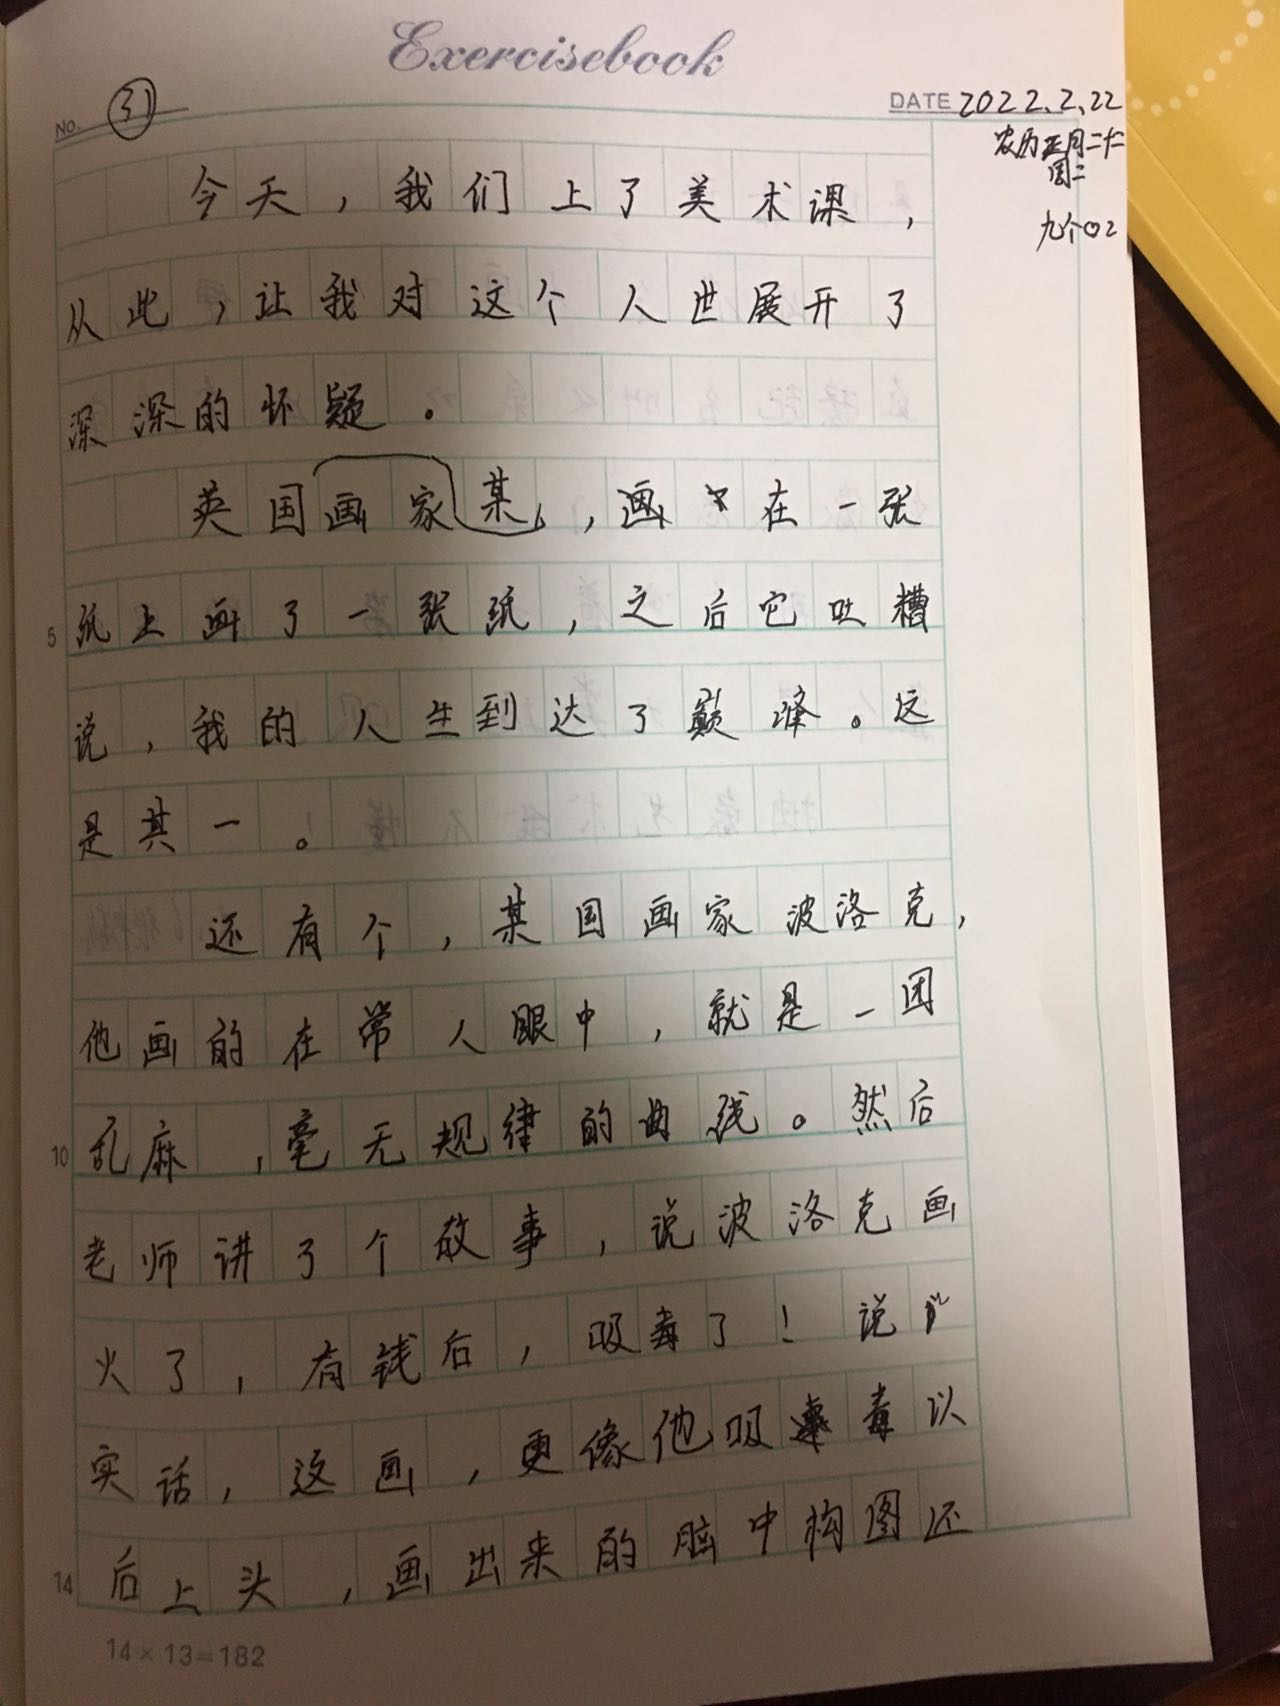 Exercisebook
No. 31
DATE 2022.2.22
农历正月二十二
周二
九个02
今天，我们上了美术课，
从此，让我对这个人世展开了
深深的怀疑。
英国画家某，，画在一张
5 纸上画了一张纸，之后它吐糟
说，我的人生到达了巅峰。这
是其一。
还有个，某国画家波洛克，
他画的在常人眼中，就是一团
10 乱麻，毫无规律的曲线。然后
老师讲了个故事，说波洛克画
火了，有钱后，吸毒了！说
实话，这画，更像他吸毒以
14 后上头，画出来的脑中构图还
14×13=182